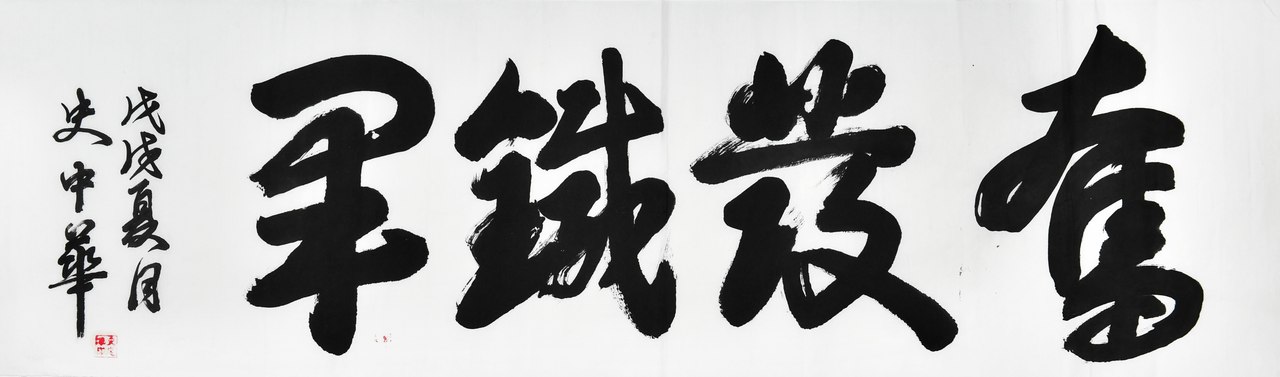 奮發鐵軍
戊戌夏月
史中華